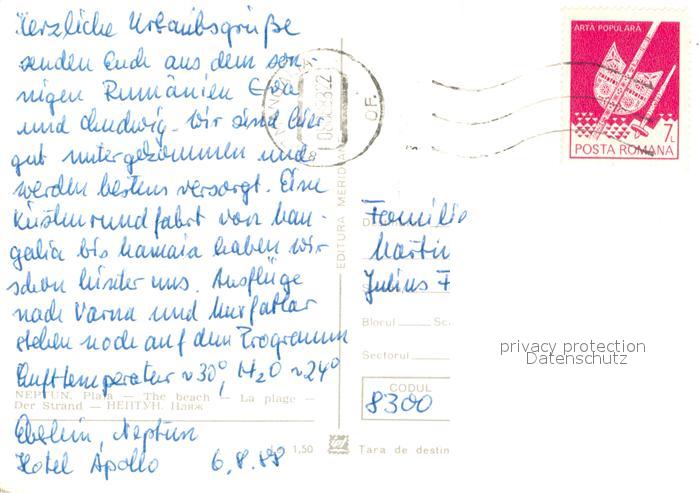 Herzliche Urlaubsgrüße
senden Euch aus dem son-
nigen Rumänien Eva
und Ludwig. Wir sind hier
gut untergekommen und
werden bestens versorgt. Eine
Küstenrundfahrt von Man-
galia bis Mamaia haben wir
schon hinter uns. Ausflüge
nach Varna und Murfatlar
stehen noch auf dem Programm
Lufttemperatur ~30°, H2O ~24°
NEPTUN. Plaja — The beach — La plage —
Der Strand — НЕПТУН. Пляж
Eberlein, Neptun
Hotel Apollo 6.8.88
Lei 1,50
EDITURA MERIDIANE
ARTA POPULARĂ
7L
POSTA ROMANA
OF.
Familie
Martin
Julius F
Blocul Sc.
Sectorul
CODUL
8300
Țara de destin
privacy protection
Datenschutz